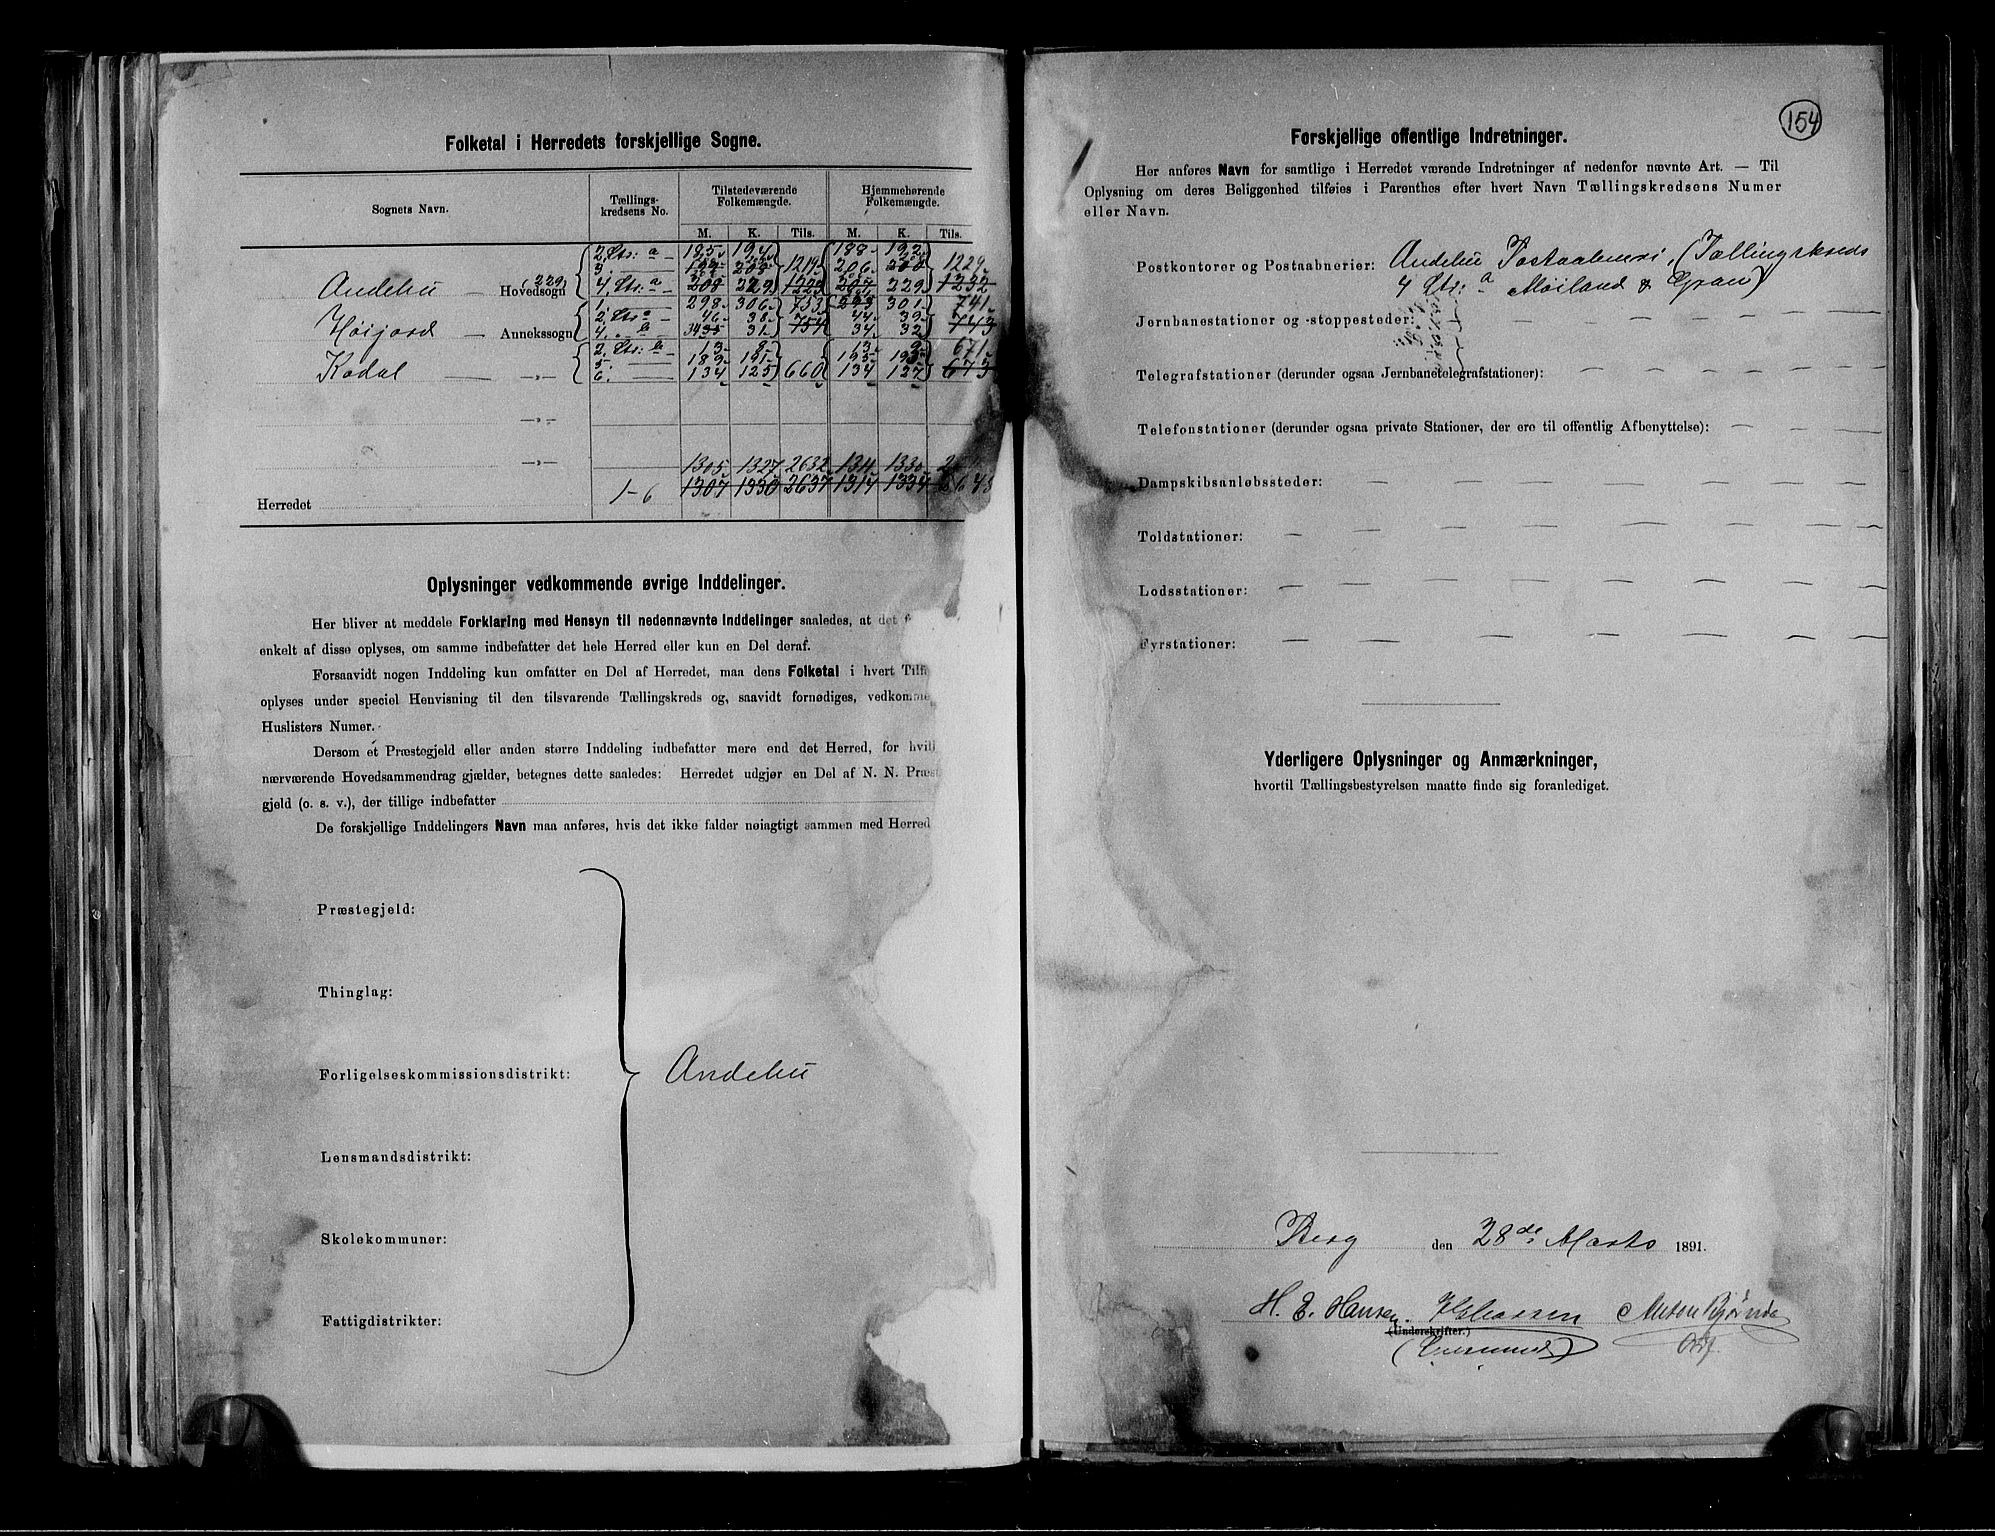 Folketal i Herredets forskjellige Sogne.
Sognets Navn.
Tællings-
kredsens No.
Tilstedeværende
Folkemængde.
Hjemmehørende
Folkemængde.
M. K. Tils. M. K. Tils.
2. Ltr: a 195 194 188 192
3. 206 1219 1229
Andebu — Hovedsogn 4. Ltr: a 208 229 1223 207 229 1232
1. 298 306 753 301 741
Høijord — Annekssogn 2. 46 38 754 44 39 743
4. b 31 34 32
2. Ltr: b 13 8 13 9 671
Kodal — „ 5. 189 191 195 193
6. 134 125 660 134 127 673
1305 1327 2632 1314 1330
Herredet 1-6 1307 1330 2637 1317 1334
Oplysninger vedkommende øvrige Inddelinger.
Her bliver at meddele Forklaring med Hensyn til nedennævnte Inddelinger saaledes, at det
enkelt af disse oplyses, om samme indbefatter det hele Herred eller kun en Del deraf.
Forsaavidt nogen Inddeling kun omfatter en Del af Herredet, maa dens Folketal i hvert
oplyses under speciel Henvisning til den tilsvarende Tællingskreds og, saavidt fornødiges,
Huslisters Numer.
Dersom et Præstegjeld eller anden større Inddeling indbefatter mere end det Herred, for
nærværende Hovedsammendrag gjælder, betegnes dette saaledes: Herredet udgjør en Del af N. N.
gjeld (o. s. v.), der tillige indbefatter
De forskjellige Inddelingers Navn maa anføres, hvis det ikke falder nøiagtigt sammen med Herred
Præstegjeld:
Thinglag:
Forligelseskommissionsdistrikt: Andebu
Lensmandsdistrikt:
Skolekommuner:
Fattigdistrikter:
154
Forskjellige offentlige Indretninger.
Her anføres Navn for samtlige i Herredet værende Indretninger af nedenfor nævnte Art. — Til
Oplysning om deres Beliggenhed tilføies i Parenthes efter hvert Navn Tællingskredsens Numer
eller Navn.
Postkontorer og Postaabnerier: Andebu Postaabneri, (Tællingskreds
4 Ltr: a Møiland & Gran)
Jernbanestationer og -stoppesteder:
Telegrafstationer (derunder ogsaa Jernbanetelegrafstationer):
Telefonstationer (derunder ogsaa private Stationer, der ere til offentlig Afbenyttelse):
Dampskibsanløbssteder:
Toldstationer:
Lodsstationer:
Fyrstationer:
Yderligere Oplysninger og Anmærkninger,
hvortil Tællingsbestyrelsen maatte finde sig foranlediget.
Berg den 28de Marts 1891.
H. E. Hansen
(Underskrifter.)